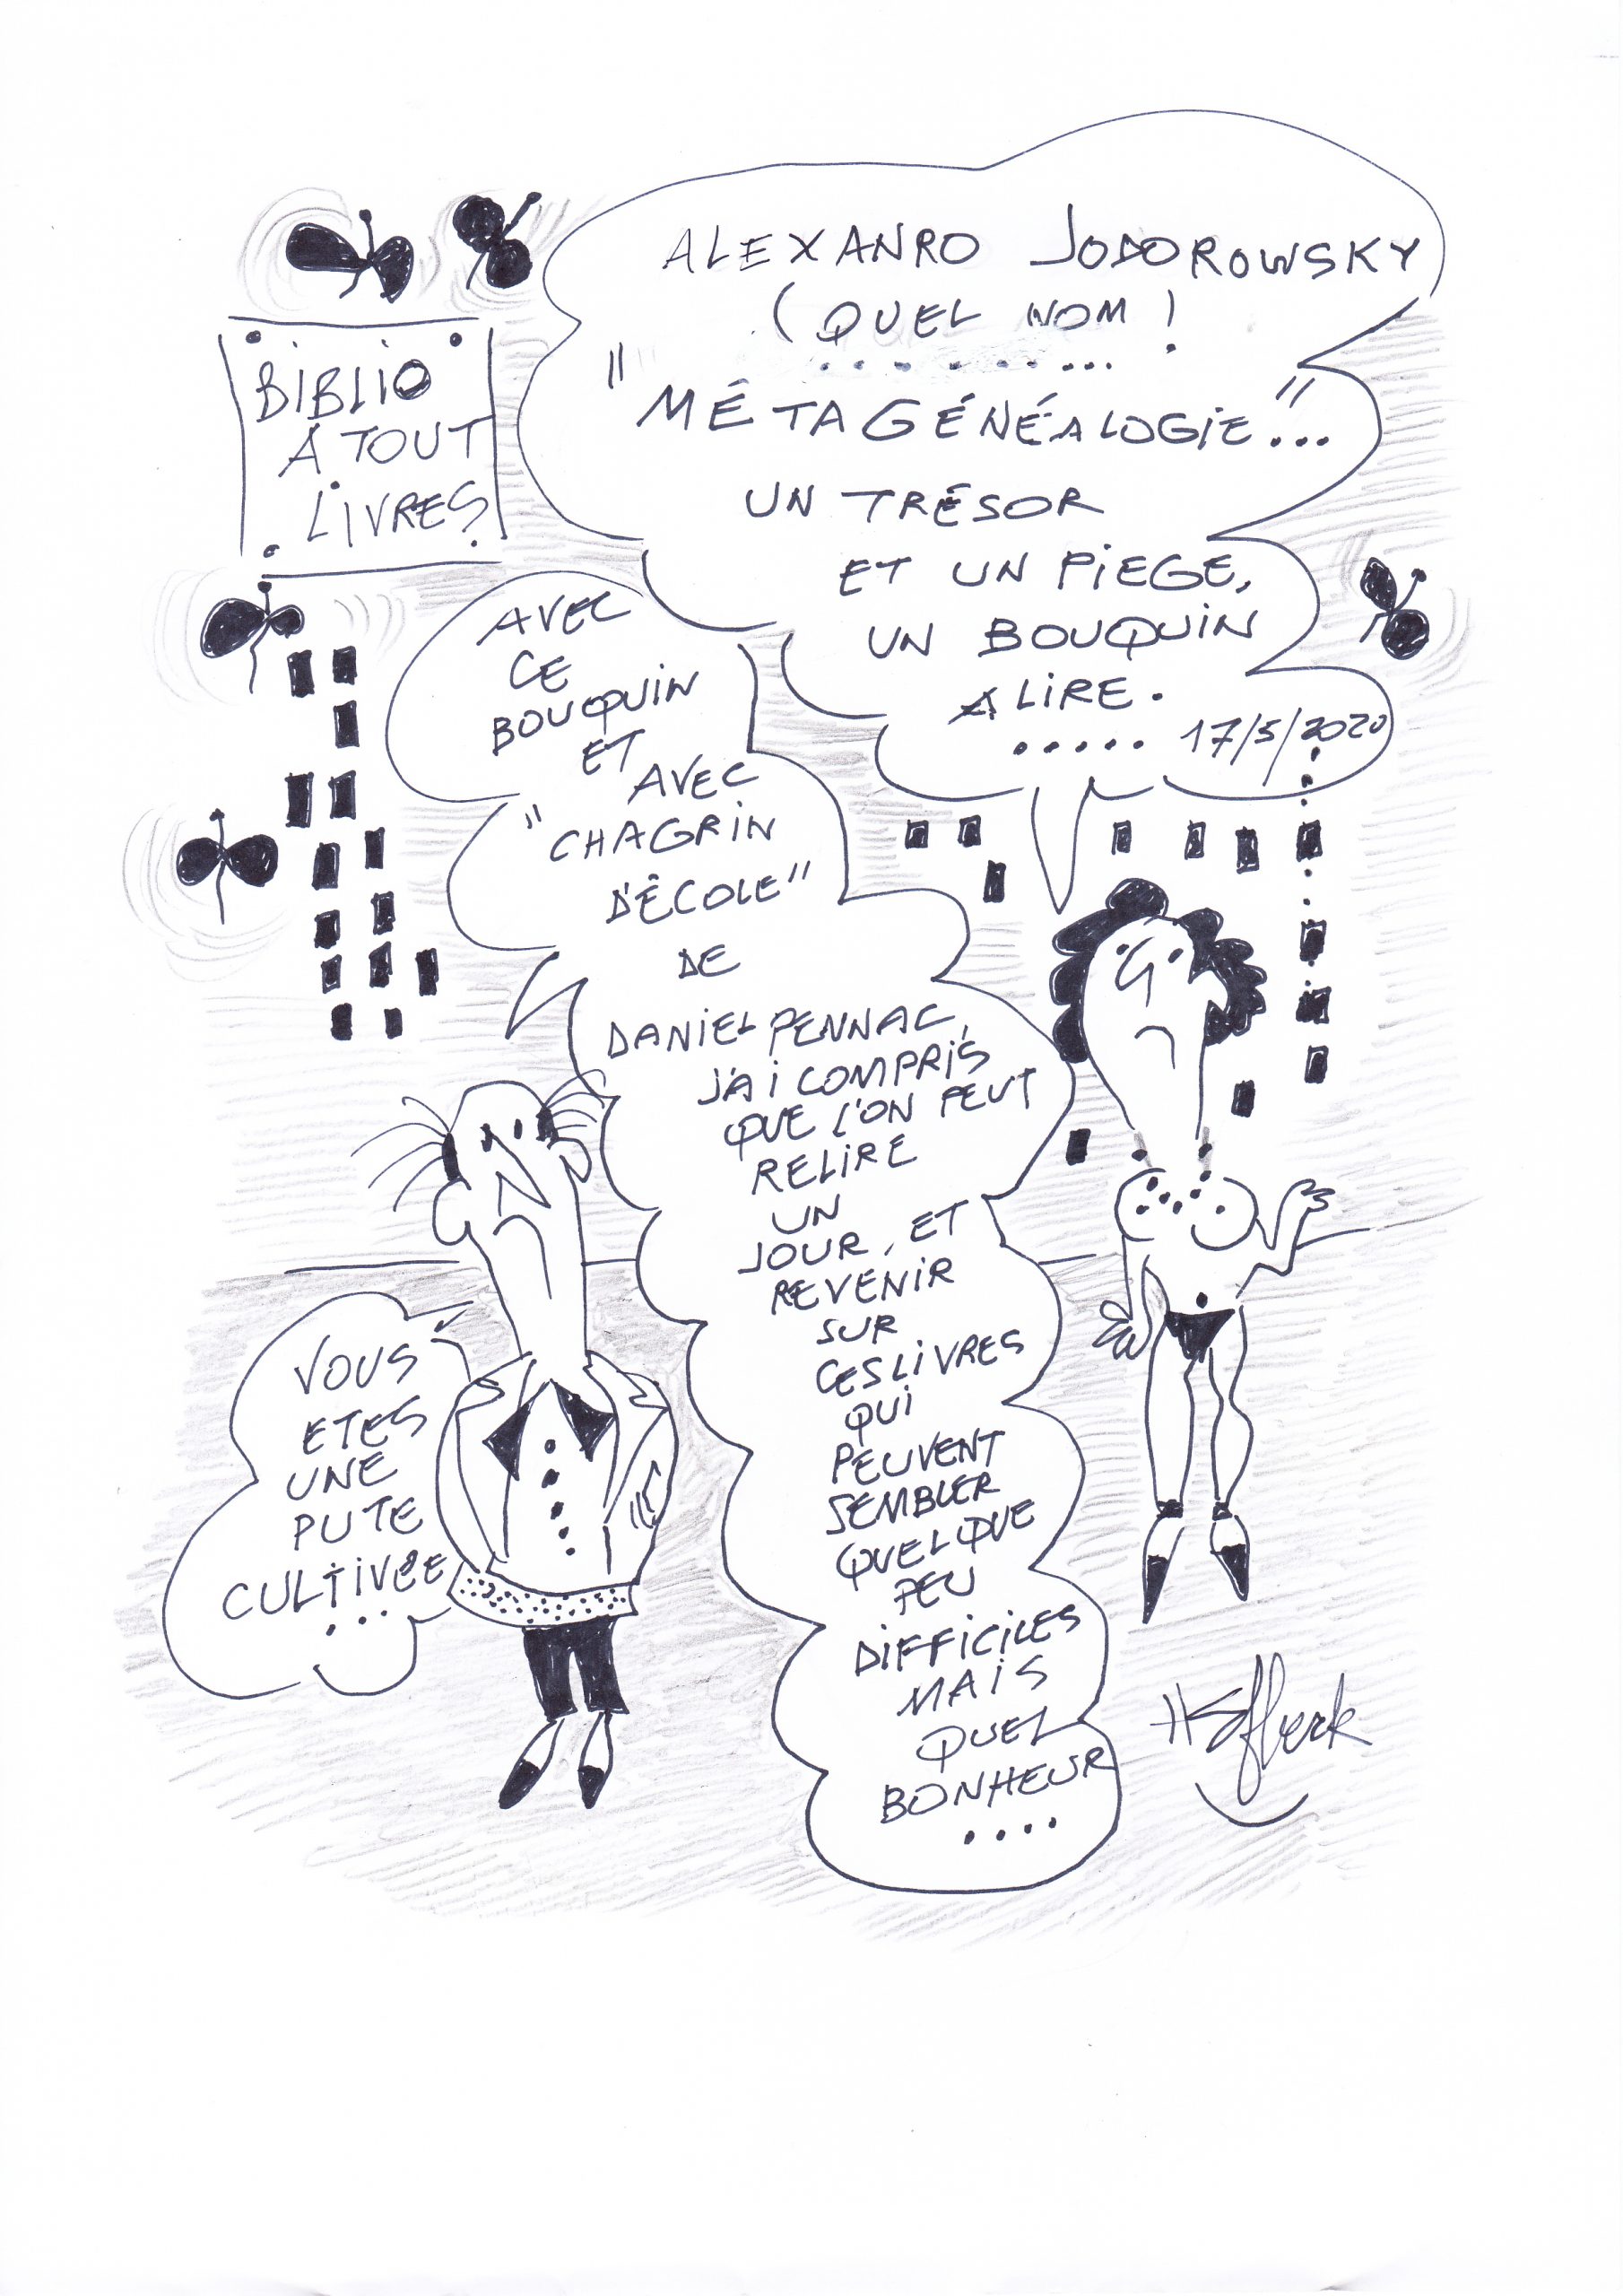 BIBLIO
A TOUT
LIVRES
ALEXANRO JODOROWSKY
( QUEL NOM !
........
"MÉTAGÉNÉALOGIE"...
UN TRÉSOR
ET UN PIEGE,
UN BOUQUIN
A LIRE.
..... 17/5/2020
AVEC
CE
BOUQUIN
ET
AVEC
"CHAGRIN
D'ÉCOLE"
DE
DANIEL PENNAC,
J'AI COMPRIS
QUE L'ON PEUT
RELIRE
UN
JOUR, ET
REVENIR
SUR
CES LIVRES
QUI
PEUVENT
SEMBLER
QUELQUE
PEU
DIFFICILES
MAIS
QUEL
BONHEUR
....
VOUS
ETES
UNE
PUTE
CULTIVÉE
...